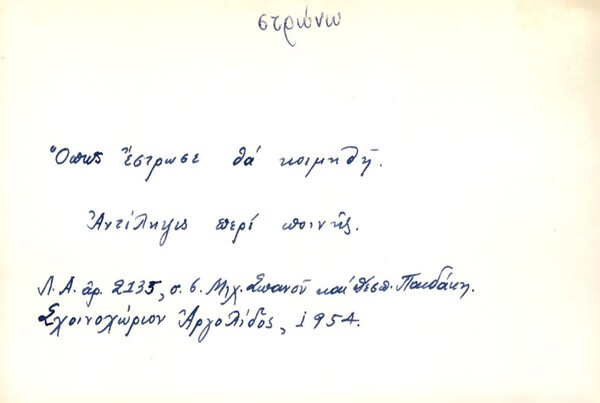 στρώνω
Ὅπως ἔστρωσε θά κοιμηθῆ.
Ἀντίληψις περί ποινῆς.
Λ.Α. ἀρ. 2135, σ. 6. Μιχ. Σπανοῦ καί Δεσπ.
Σχοινοχώριον Ἀργολίδος, 1954.